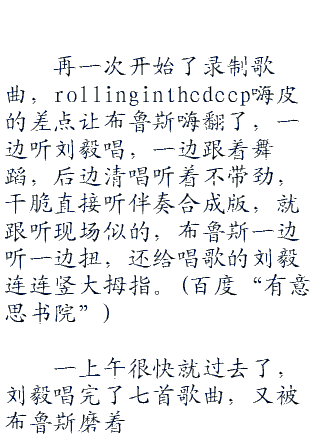 再一次开始了录制歌
曲，rollinginthcdccp嗨皮
的差点让布鲁斯嗨翻了，一
边听刘毅唱，一边跟着舞
蹈，后边清唱听着不带劲，
干脆直接听伴奏合成版，就
跟听现场似的，布鲁斯一边
听一边扭，还给唱歌的刘毅
连连竖大拇指。(百度“有意
思书院”)
一上午很快就过去了，
刘毅唱完了七首歌曲，又被
布鲁斯磨着